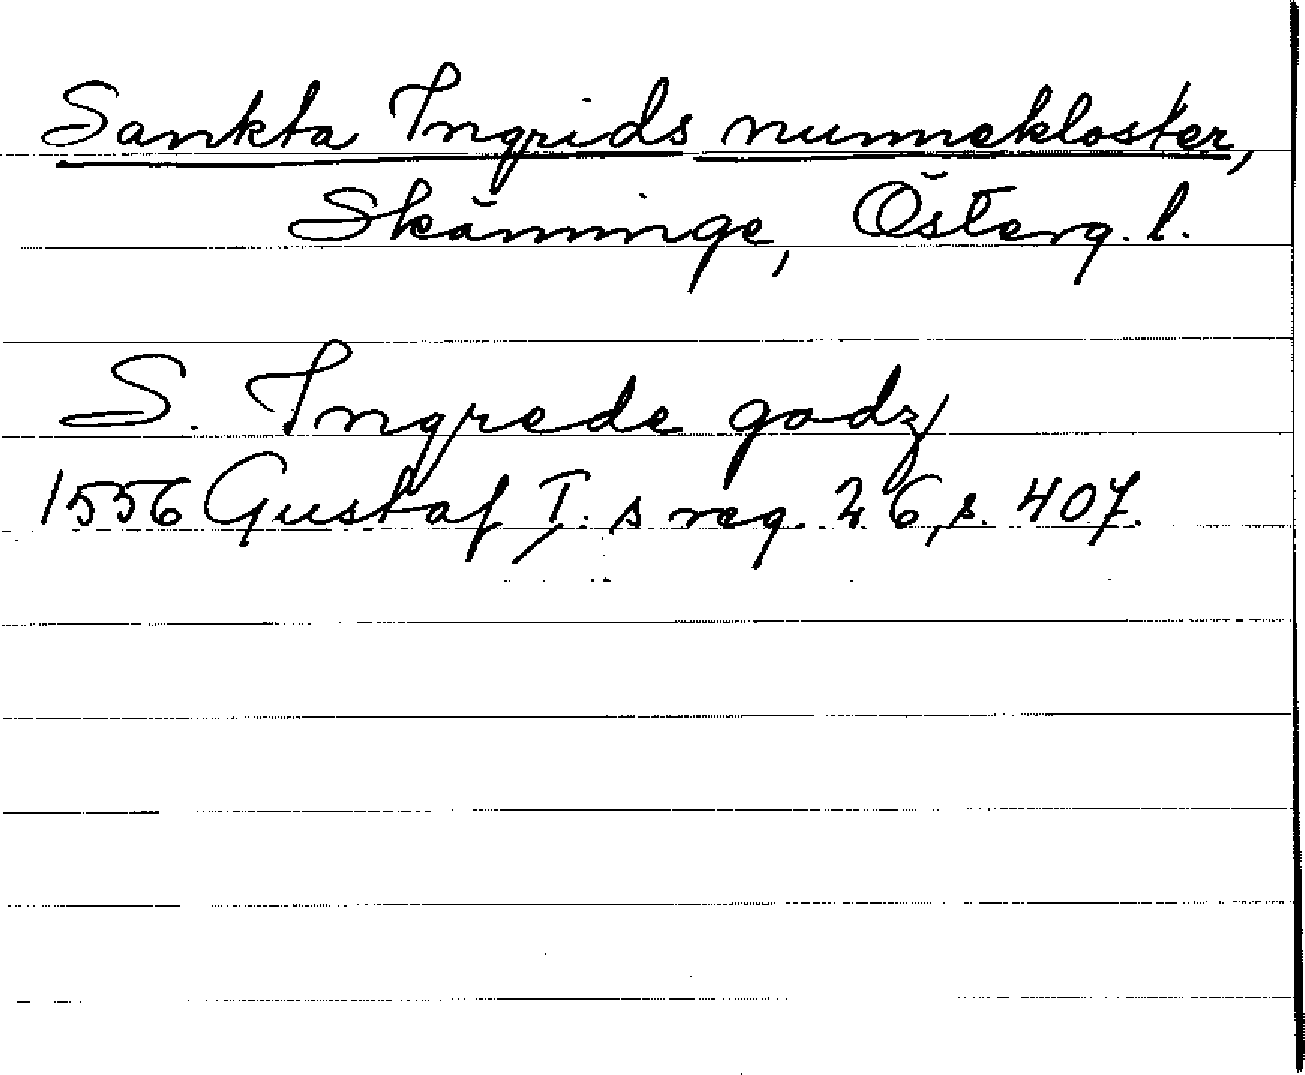 Sankta Ingrids nunnekloster,
Skänninge, Österg. l.
S. Ingrede godz
1556 Gustaf I. s reg. 26, s. 407.